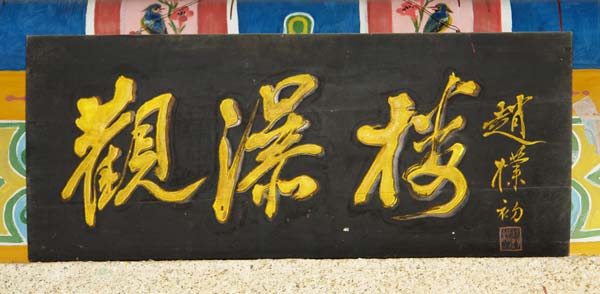 觀瀑楼
趙樸初